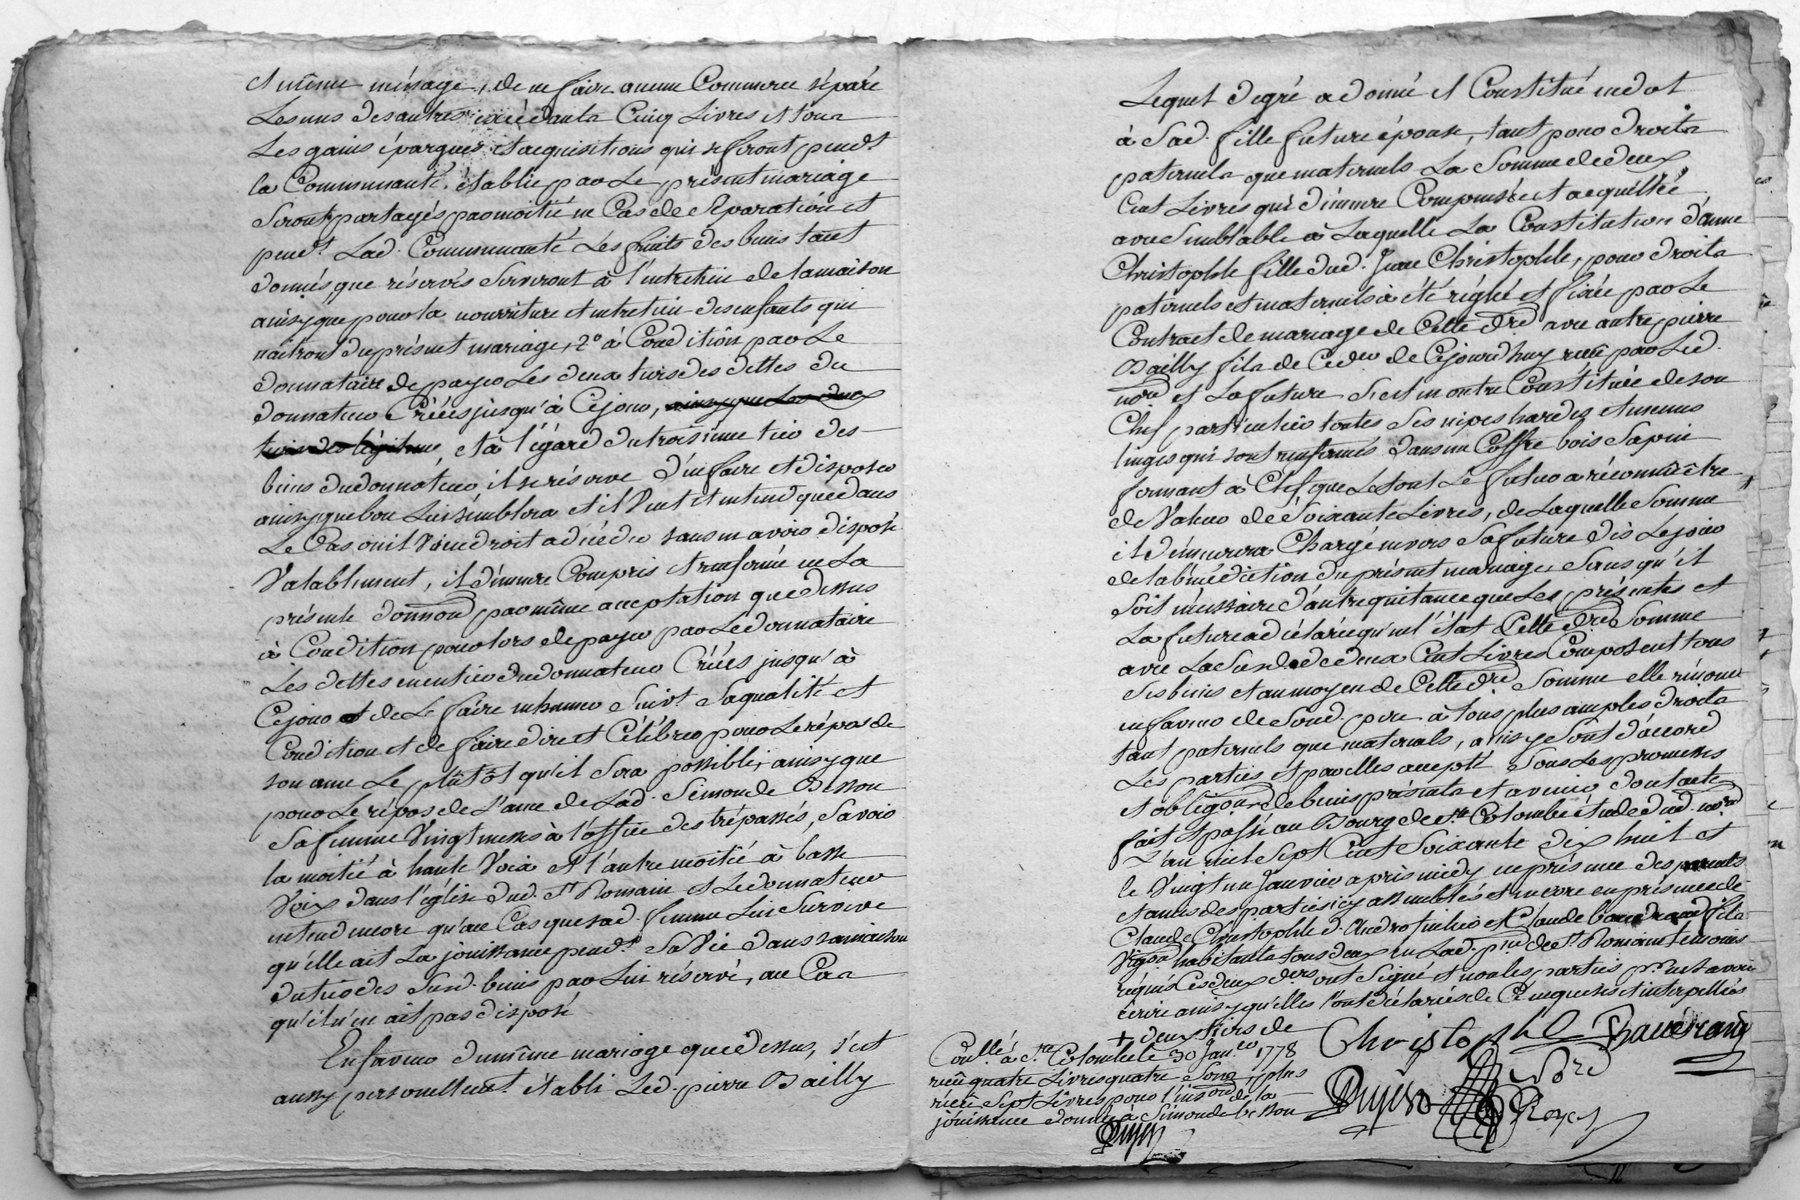 et même ménage, de ne faire aucun Commerce séparé
Les uns des autres excédant Cinq Livres et tous
Les gains épargnes et acquisitions qui se feront pend.t
la Communauté établie par Le présent mariage
Seront partagés par moitié en Cas de Séparation et
pend.t Lad. Communauté Les fruits des biens tant
donnés que réservés Serviront à l'entretien de la maison
ainsy que pour la nourriture et entretien des enfants qui
naîtront du présent mariage, 2.o à Condition par Le
donnataire de payer Les deux tiers des dettes du
donnateur Créées jusqu'à Cejour, ainsy que Les deux
tiers des légitime, et à l'égard du troisième tier des
biens du donnateur il se réserve d'en faire et disposer
ainsy que bon Lui semblera et il Veut et entend que dans
Le Cas où il Viendroit a décéder sans en avoir disposé
Valablement, il demeure Compris et renfermé en La
présente donnaôn par même acceptation que dessus
à Condition pour lors de payer par Le donnataire
Les dettes en entier du donnateur Créées jusqu'à
Cejour et de Le faire inhumer Suiv.t Sa qualité et
Condition et de faire dire et Célébrer pour Le répos de
son ame Le plûtôt qu'il Sera possible, ainsy que
pour Le répos de L'ame de Lad. Simonde Besson
Sa femme Vingt messes à l'office des trépassés, Savoir
la moitié à haute Voix et l'autre moitié à basse
Voix dans l'église dud. S.t Romain et Le donnateur
entend encore qu'au Cas que sad. femme Lui Survive
qu'elle ait La jouissance pend.t Sa Vie dans sa maison
du tier des Susd. biens par Lui réservé, au Cas
qu'il n'en ait pas disposé
En faveur du même mariage que dessus, s'est
aussy personellement établi Led. pierre Bailly
Lequel de gré a donné et Constitué en dot
à Sad. fille future épouse, tant pour droits
paternels que maternels La Somme de deux
Cent Livres qui demeure Compensée et acquittée
avec Semblable à Laquelle La Constitution d'anne
Christophle fille dud. Jean Christophle, pour droits
paternels et maternels à été réglé et fixée par Le
Contract de mariage de Cette d.re avec autre pierre
Bailly fils de Ced.er de Cejourd'huy reçû par Led.
no.re et La future s'est en outre Constituée de son
Chef particulier toutes Ses nipes hardes et menus
linges qui sont renfermés dans un Coffre bois Sapin
fermant à Clef, que Le tout Le futur a réconnû être
de Valeur de Soixante Livres, de Laquelle Somme
il demeurera Chargé envers Sa future dès Le jour
de la bénédiction du présent mariage, Sans qu'il
Soit nécessaire d'autre quitance que Les présentes et
La future a déclaré qu'en l'état Cette d.re Somme
avec La Susd. de deux Cent Livres Composent tous
Ses biens et au moyen de Cette d.re Somme elle rénonce
en faveur de Sond. pere à tous plus amples droits
tant paternels que maternels, ainsy Sont d'accord
Les parties et par elles accepté Sous Les promesses
et obligaôn de biens présents et avenir dont acte
fait et passé au Bourg de S.te Colombe étude dud. no.re
L'an mil Sept Cent Soixante dix huit et
le Vingt un Janvier après midy, en présence des parents
et amis des parties icy assemblés et encore en présence de
Claude Christophle d. et Claude fils
Vigon habitants tous deux en Lad. p.sse de S.t Romain temoins
réquis Ces deux d.ers ont Signé et non les parties p.r ne Savoir
écrire ainsy qu'elles l'ont déclaré de Ce enquises et interpellées
+ deux tiers de
Christophle
Con.llé à S.te Colombe le 30 Jan.er 1778
reçû quatre Livres quatre Sous, plus
reçû Sept Livres pour l'ins.on de la
jouissance donnée à Simonde besson